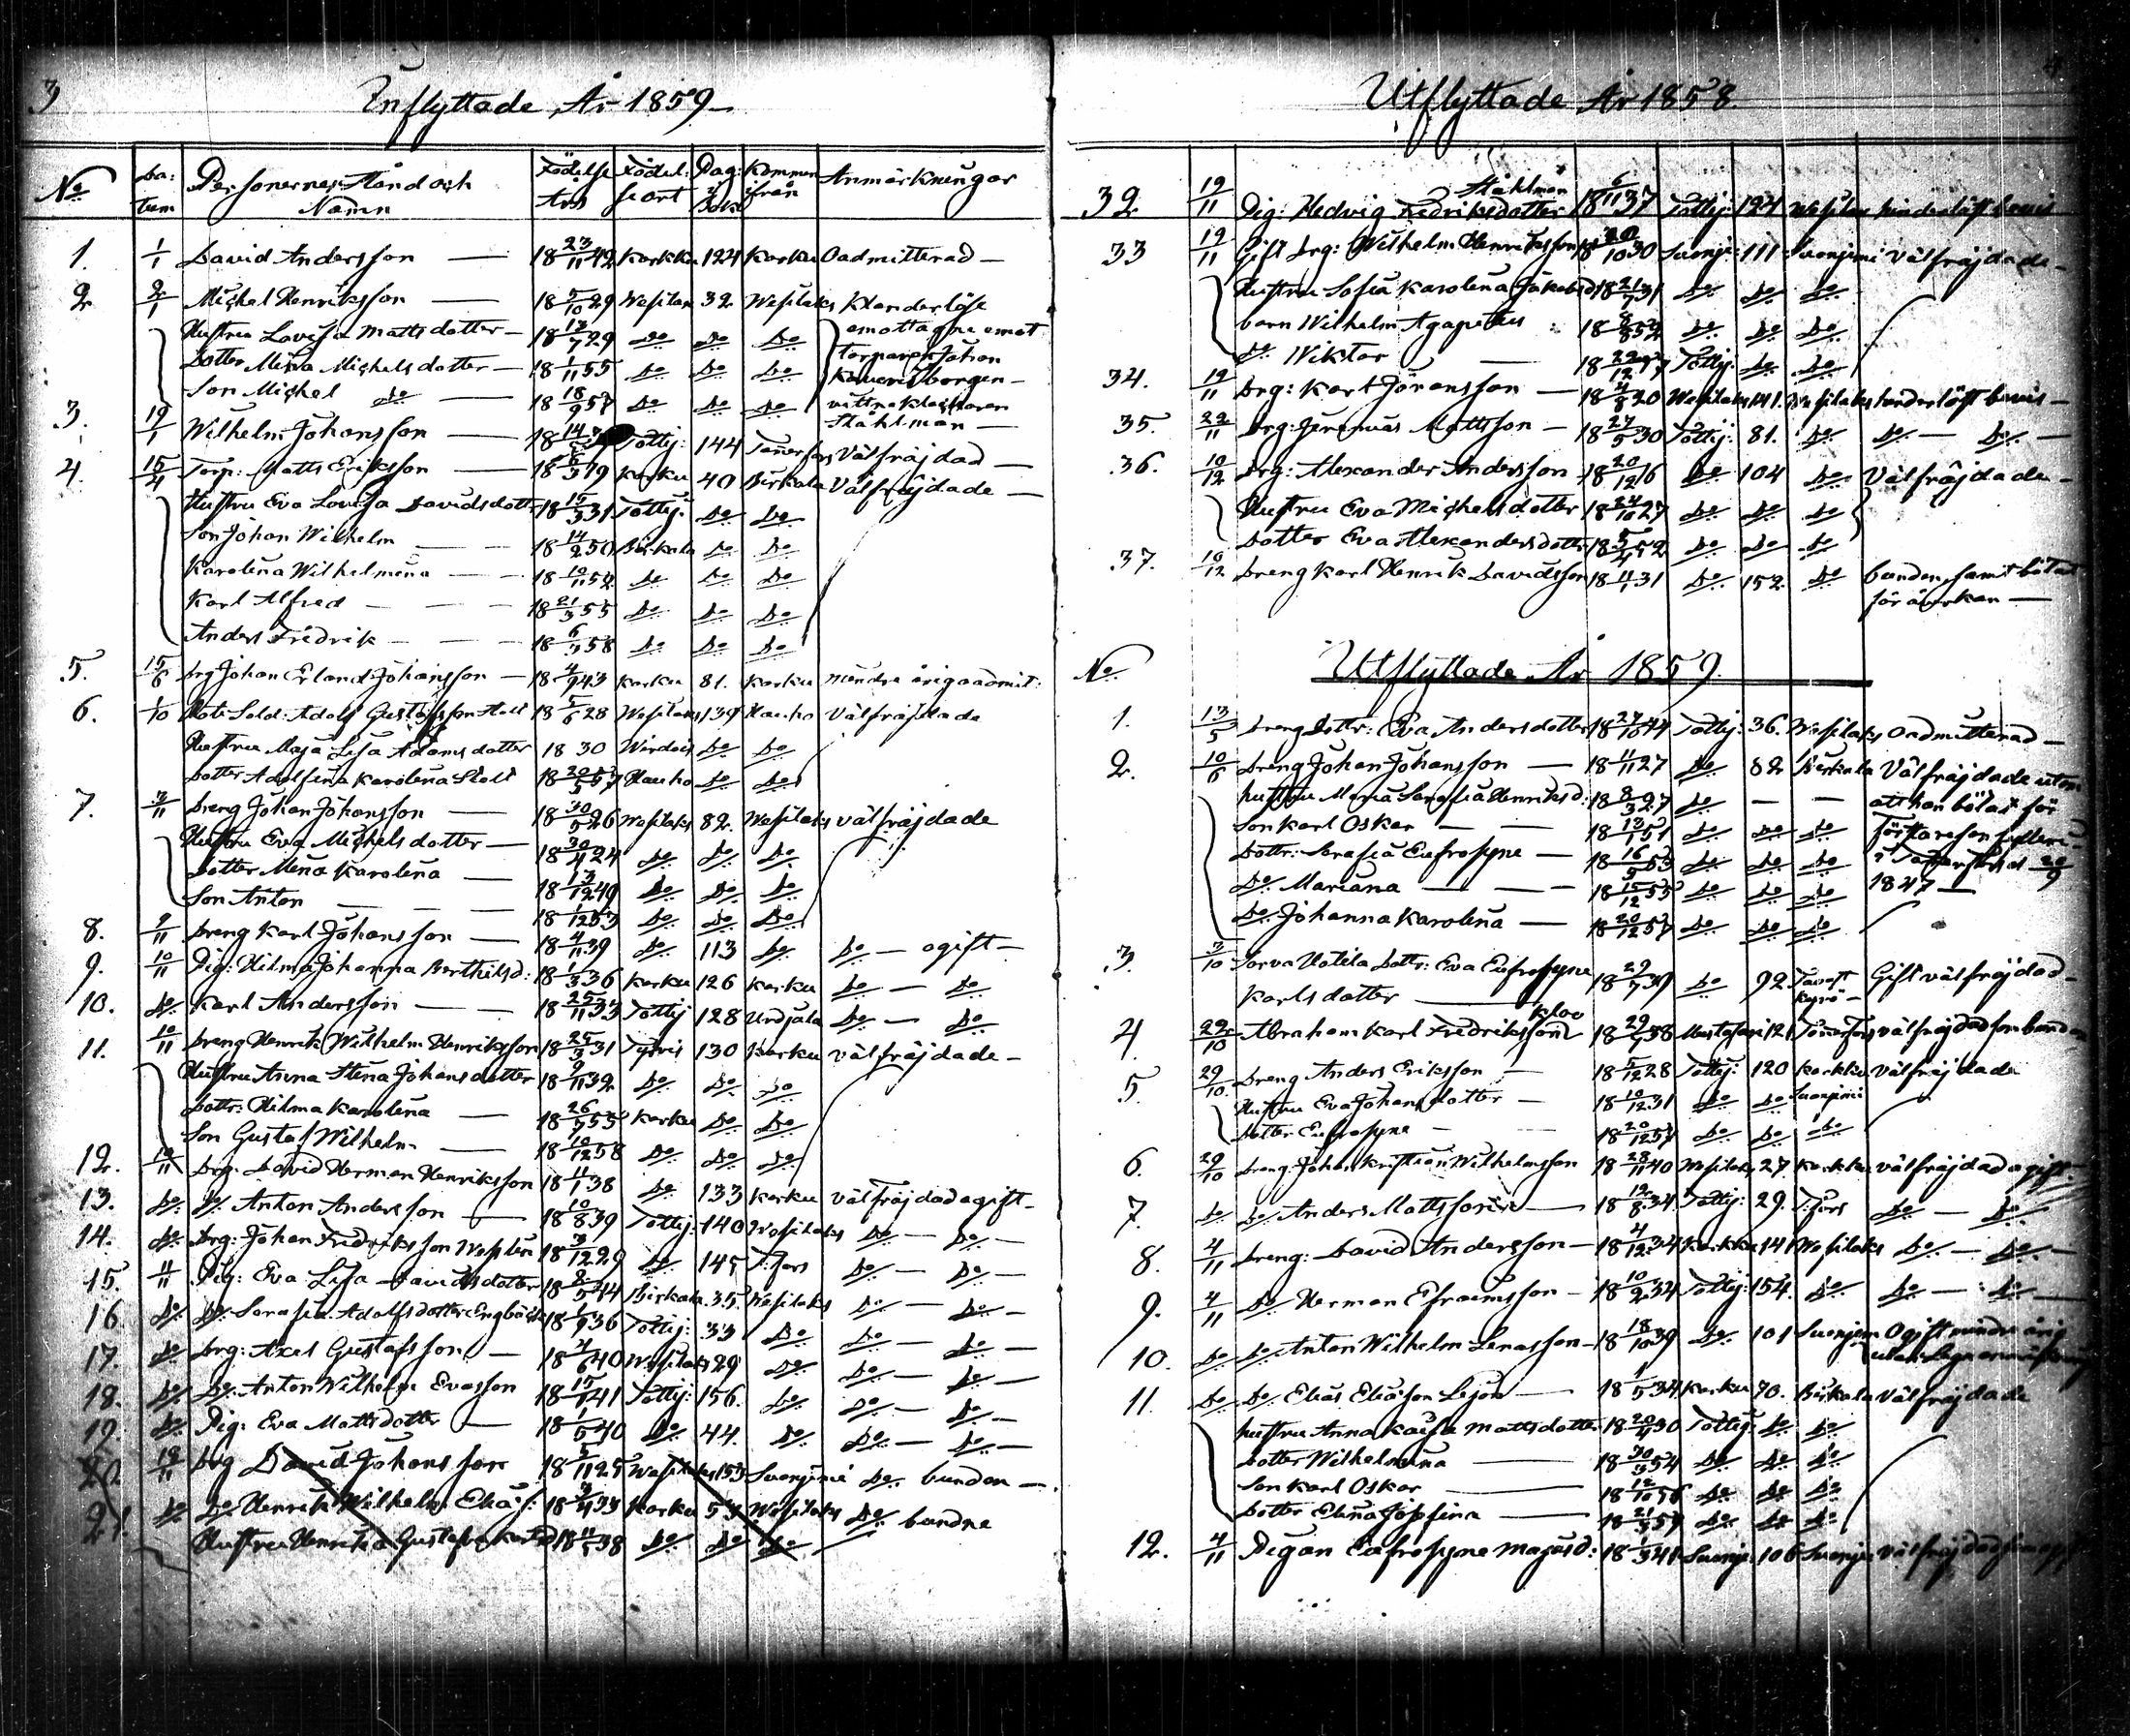 3
Inflyttade År 1859
No Da: tum Personernes Stånd och Namn Födelse År Födel: seort Pag: i Bok Kommen ifrån Anmärkningar
1. 1/1 David Andersson — 18 23/11 42 Karkku 124 Karku Oadmitterad —
2 2/1 Michel Henriksson — 18 5/10 29 Wesilax 32 Wesilaks Klanderlöse
Hustru Lovisa Mattsdotter — 18 13/7 29 Do Do Do emottagne emot
Dotter Mina Michelsdotter — 18 1/11 55 Do Do Do torparen Johan
Son Michel Do — 18 18/9 57 Do Do Do
vittne klockaren
3. 19/1 Wilhelm Johansson — Tottij: 144 Tamerfors Välfräjdad —
Ståhlman —
4. 15/4 Torp: Matts Eriksson — Karku 40 Birkala Välfräjdade —
Hustru Eva Lovisa Davidsdott 18 15/3 31 Tottij: Do Do
Son Johan Wilhelm — 18 14/2 50 Birkala Do Do
Karolina Wilhelmina — 18 10/11 52 Do Do Do
Karl Alfred — 18 21/3 55 Do Do Do
Anders Fredrik — 18 6/3 58 Do Do Do
5. 15/6 Drg Johan Erland Johansson — 18 4/9 43 Karku 81. Karku mindre åriga admit:
6. 1/10 Adolf Gustafsson 18 5/6 28 Wesilaks 139 Hauho Välfräjdade
Hustru Maja Lisa Adamsdotter 18 30 Wirdois Do Do
Dotter Adolfina Karolina 18 20/5 57 Hauho Do Do
7. 3/11 Dreng Johan Johansson — 18 30/5 26 Wesilaks 82. Wesilaks välfräjdade
Hustru Eva Michelsdotter — 18 30/4 24 Do Do Do
Dotter Mina Karolina — 18 13/12 49 Do Do Do
Son Anton — 18 1/12 53 Do Do Do
8. 9/11 Dreng Karl Johansson — 18 4/11 39 Do 113 Do Do — ogift —
9. 10/11 Pig: Hilma Johanna Berthilsd: 18 1/3 36 Karku 126 Karku Do — Do
10. Do Karl Andersson — 18 25/11 33 Tottij 128 Urdjala Do — Do
11. 10/11 Dreng Henrik Wilhelm Henriksson 18 25/3 31 Tyrvis 130 Karku välfräjdade —
Hustru Anna Stina Johansdotter 18 9/11 32 Do Do Do
Dottr: Hilma Karolina — 18 26/7 55 Karku Do Do
Son Gustaf Wilhelm — 18 10/12 58 Do Do Do
12. 10/11 Drg. David Herman Henriksson 18 11/1 38 Do 133 Karku välfräjdad ogift —
13. Do Do Anton Andersson — 18 10/8 39 Tottij: 140 Wesilaks Do — Do —
14. Do Drg: Johan Fredriksson Weslin 18 3/12 29 Do 145 T:fors Do — Do —
15. 11/11 Pig: Eva Lisa Davidsdotter 18 2/5 44 Birkala 35. Wesilaks Do — Do —
16 Do Do Serafia Adolfsdotter 18 1/9 36 Tottij: 33 Do Do — Do —
17. Do Drg: Axel Gustafsson — 18 4/6 40 Wesilaks 29 Do Do — Do —
18. Do Do Anton Wilhelm Evasson 18 15/1 41 Tottij: 156. Do Do — Do —
19. Do Pig: Eva Mattsdotter — 18 1/5 40 Do 44. Do Do — Do —
20 12/11 Drg David Johansson 18 5/11 25 Wesilaks 153 Suonjemi Do bunden —
21. Do Do Henrik Wilhelm Eliäs: 18 3/4 33 Karku 53 Wesilaks Do bundne
Hustru Henrika Gustafva 18 11/5 38 Do Do Do
4
Utflyttade År 1858
Ståhlman
32 19/11 Pig: Hedvig Fredriksdotter 18 6/11 37 Tottij: 124 Wesilax hinderlöst bevis
33 19/11 Gift Drg: Wilhelm Henriksson 18 20/10 30 Suonje: 111 Suonjemi välfräjdade —
Hustru Sofia Karolina Jakobsd 18 21/7 31 Do Do Do
barn Wilhelm Agapetus 18 6/8 52 Do Do Do
Do Wiktor — 18 29/12 Tottij: Do Do
34. 19/11 Drg: Karl Göransson — 18 4/8 20 Wesilaks 141. Wesilaks hinderlöst bevis —
35. 22/11 Drg: Jeremias Mattsson — 18 27/5 30 Tottij: 81. Do Do — Do —
36. 10/12 Drg: Alexander Andersson 18 20/12 16 Do 104 Do Välfräjdade —
Hustru Eva Michelsdotter 18 24/10 27 Do Do Do
Dotter Eva Alexandersdotter 18 5/2 52 Do Do Do
37. 16/12 Dreng Karl Henrik Davidsson 18 4/1 31 Do 152 Do bunden samt bötat
för åverkan —
No Utflyttade År 1859.
1. 13/5 Dreng Dotter: Eva Andersdotter 18 27/10 44 Tottij: 36. Wesilaks Oadmitterad —
2. 10/6 Dreng Johan Johansson — 18 11/11 27 Do 82 Birkala Välfräjdade utom
hustru Maria Serafia Henriksd: 18 8/3 27 Do — — att han bötat för
Son Karl Oskar — 18 13/1 51 Do Do Do
Dottr: Serafia Eufrosyne — 18 16/5 53 Do Do Do
Do Mariana — 18 15/12 55 Do Do Do 1847 —
Do Johanna Karolina — 18 20/12 57 Do Do Do
3. 3/10 Sorva Hotila Dottr: Eva Eufrosyne 18 29/7 39 Do 92 Tavast Kyrö — Gift välfräjdad —
Karlsdotter —
4. 29/10 Abraham Karl Fredriksson 18 29/7 38 Mustasaari 121 Tamerfors välfräjdad
5 29/10 Dreng Anders Eriksson — 18 5/12 28 Tottij: 120 Karkku välfräjdade
Hustru Eva Johansdotter — 18 10/12 31 Do Do Suonjemi
Dotter Eufrosyne — 18 20/12 57 Do Do Do
6. 29/10 Dreng Johan Kristian Wilhelmsson 18 28/11 40 Wesilaks 27. Karkku välfräjdad ogift
7. Do Do Anders Mattsson — 18 12/8 34. Tottij: 29. T:fors Do — Do
8. 4/11 Dreng: David Andersson — 18 4/12 34 Karkku 141 Wesilaks Do — Do —
9. 4/11 Do Herman Efraimsson — 18 10/2 34 Tottij: 154. Do Do — Do —
10. Do Do Anton Wilhelm Lenasson — 18 18/10 39 Do 101 Suonjem Ogift mindre årig
11. Do Do Elias Eliasson Lejon — 18 1/5 34 Karku 70. Birkala Välfräjdade
hustru Anna Kaisa Mattsdotter 18 20/4 30 Tottij: Do Do
Dotter Wilhelmina — 18 30/3 54 Do Do Do
Son Karl Oskar — 18 12/10 56 Do Do Do
Dotter Elina Josefina — 18 21/3 59 Do Do Do
12. 4/11 Pigan Eufrosyne Majasd: 18 1/3 41 Suonje 106 Suonje